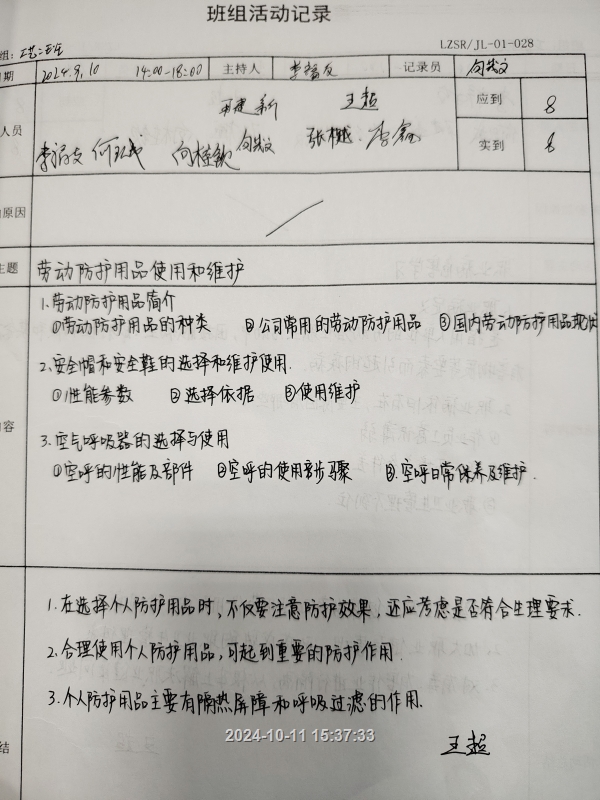 班组活动记录
组: 工艺二班
LZSR/JL-01-028
期 2024.9.10 14:00-18:00 主持人 记录员
王超 应到 8
人员 实到 8
原因
主题 劳动防护用品使用和维护
1.劳动防护用品简介
①劳动防护用品的种类 ②公司常用的劳动防护用品 ③国内劳动防护用品现状
2.安全帽和安全鞋的选择和维护使用.
①性能参数 ②选择依据 ③使用维护
容
3.空气呼吸器的选择与使用
①空呼的性能及部件 ②空呼的使用步骤 ③.空呼日常保养及维护.
1.在选择个人防护用品时,不仅要注意防护效果,还应考虑是否符合生理要求.
2.合理使用个人防护用品,可起到重要的防护作用.
3.个人防护用品主要有隔热屏障和呼吸过滤的作用.
2024-10-11 15:37:33
结 王超